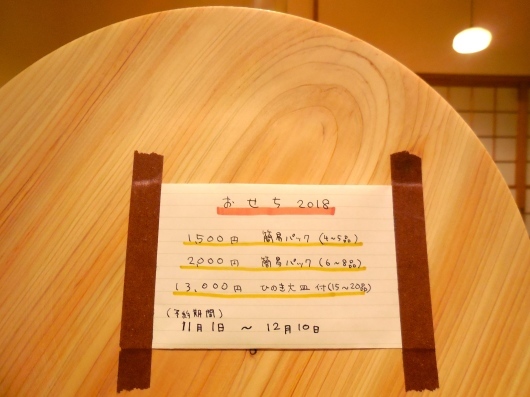 おせち 2018
1500円 簡易パック (4~5品)
2,000円 簡易パック (6~8品)
13,000円 ひのき大皿付(15~20品)
(予約期間)
11月1日 ~ 12月10日